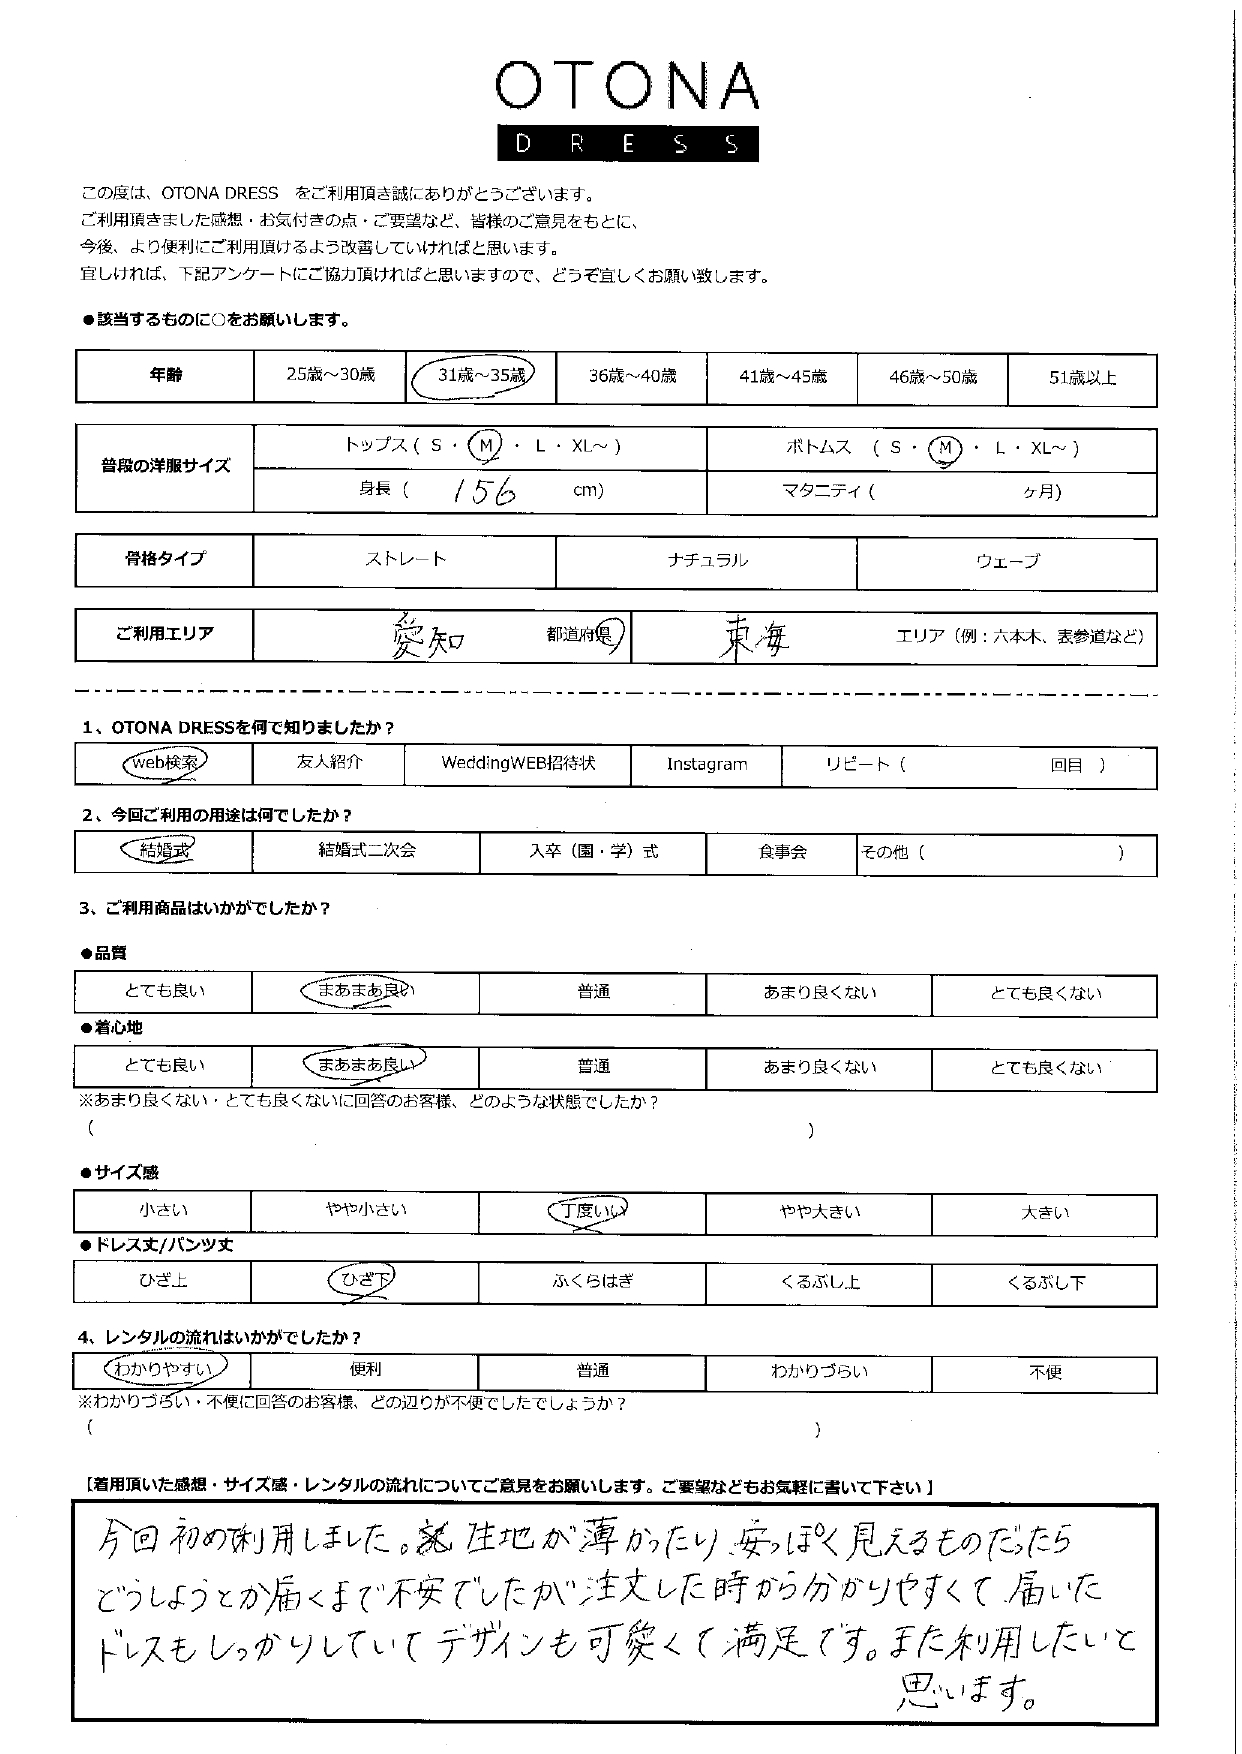 OTONA
DRESS
この度は、OTONA DRESS をご利用頂き誠にありがとうございます。
ご利用頂きました感想・お気付きの点・ご要望など、皆様のご意見をもとに、
今後、より便利にご利用頂けるよう改善していければと思います。
宜しければ、下記アンケートにご協力頂ければと思いますので、どうぞ宜しくお願い致します。
●該当するものに○をお願いします。
年齢 25歳～30歳 31歳～35歳 36歳～40歳 41歳～45歳 46歳～50歳 51歳以上
普段の洋服サイズ トップス ( S ・ M ・ L ・ XL～ ) ボトムス ( S ・ M ・ L ・ XL～ )
身長 ( 156 cm) マタニティ ( ヶ月)
骨格タイプ ストレート ナチュラル ウェーブ
ご利用エリア 愛知 都道府県 東海 エリア（例：六本木、表参道など）
1、OTONA DRESSを何で知りましたか？
web検索 友人紹介 WeddingWEB招待状 Instagram リピート（ 回目 ）
2、今回ご利用の用途は何でしたか？
結婚式 結婚式二次会 入卒（園・学）式 食事会 その他（ ）
3、ご利用商品はいかがでしたか？
●品質
とても良い まあまあ良い 普通 あまり良くない とても良くない
●着心地
とても良い まあまあ良い 普通 あまり良くない とても良くない
※あまり良くない・とても良くないに回答のお客様、どのような状態でしたか？
（ ）
●サイズ感
小さい やや小さい 丁度いい やや大きい 大きい
●ドレス丈/パンツ丈
ひざ上 ひざ下 ふくらはぎ くるぶし上 くるぶし下
4、レンタルの流れはいかがでしたか？
わかりやすい 便利 普通 わかりづらい 不便
※わかりづらい・不便に回答のお客様、どの辺りが不便でしたでしょうか？
（ ）
【着用頂いた感想・サイズ感・レンタルの流れについてご意見をお願いします。ご要望などもお気軽に書いて下さい】
今回初めて利用しました。生地が薄かったり、安っぽく見えるものだったら
どうしようとか届くまで不安でしたが注文した時から分かりやすくて、届いた
ドレスもしっかりしていてデザインも可愛くて満足です。また利用したいと
思います。